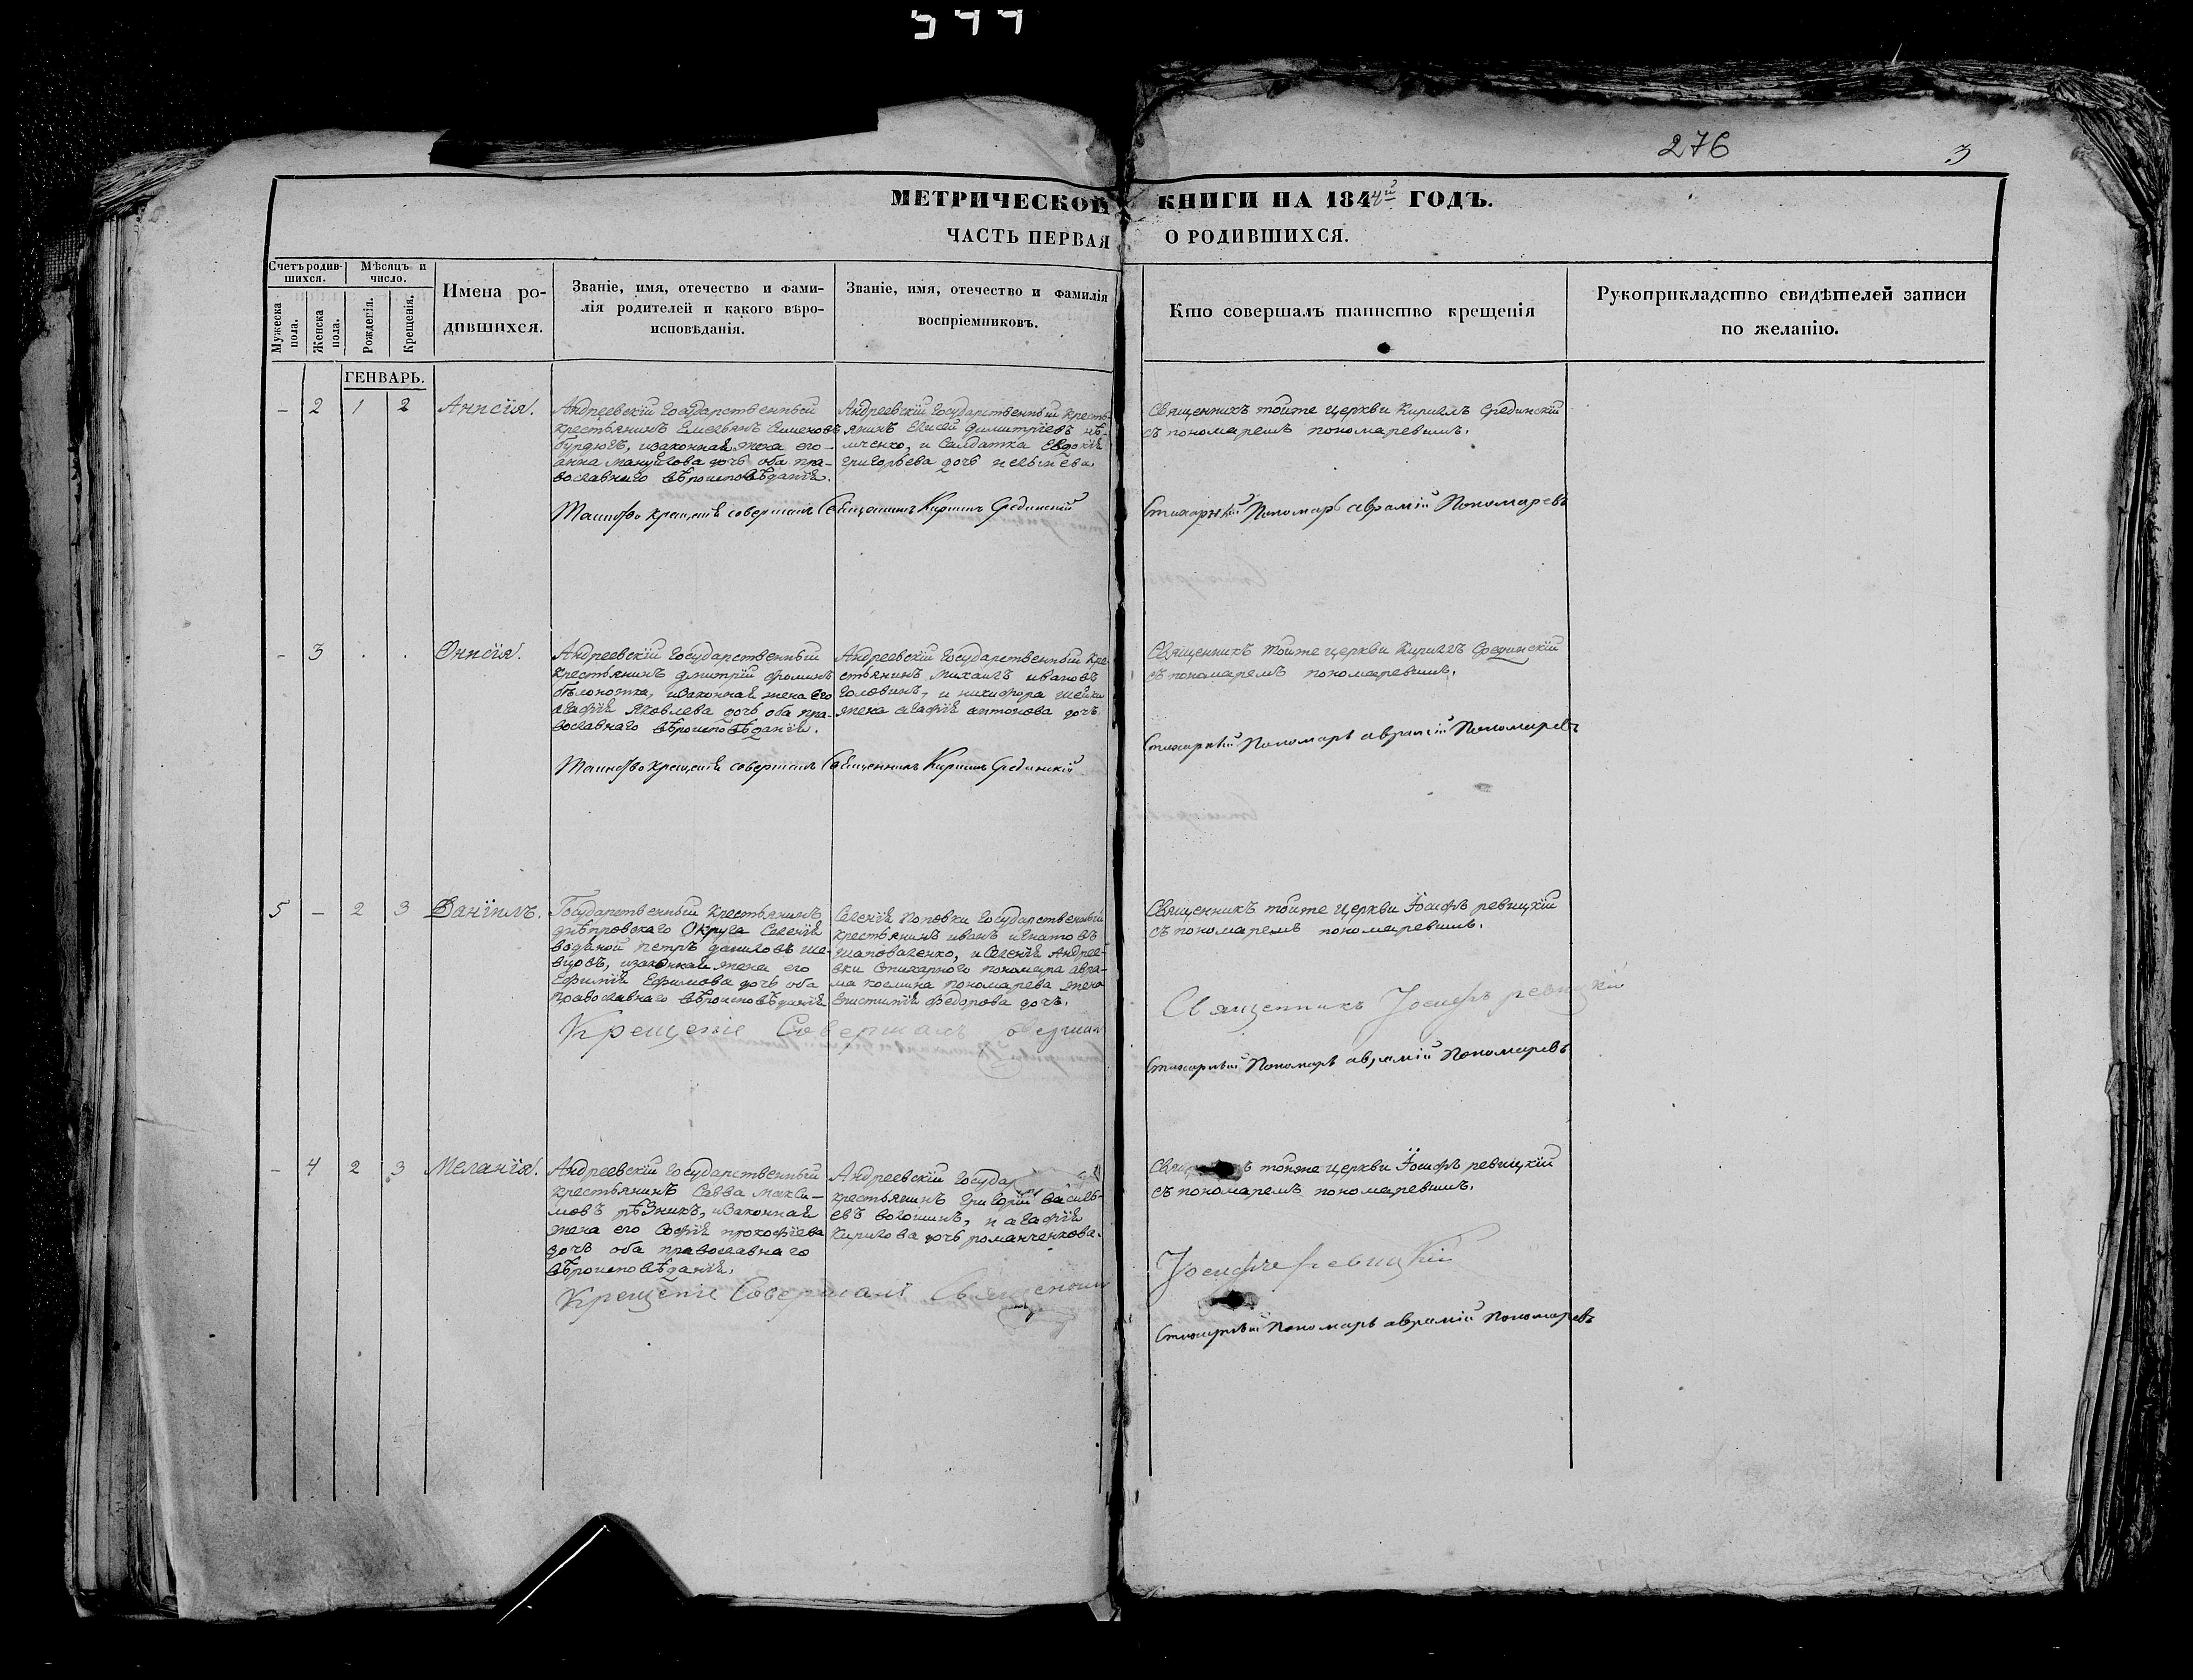 544
276
3
МЕТРИЧЕСКОЙ КНИГИ НА 1844й ГОДЪ.
ЧАСТЬ ПЕРВАЯ О РОДИВШИХСЯ.
Счетъ родившихся.
Мужеска пола.
Женска пола.
Мѣсяцъ и число.
Рожденія.
Крещенія.
Имена родившихся.
Званіе, имя, отечество и фамилія родителей и какого вѣроисповѣданія.
Званіе, имя, отечество и фамилія воспріемниковъ.
Кто совершалъ таинство крещенія
Рукоприкладство свидѣтелей записи по желанію.
ГЕНВАРЬ.
- 2 1 2 Анисія.
Андреевскій государственный
крестьянинъ Емельянъ Семеновъ
бурдюгъ, изаконная жена его
анна мануйлова дочь оба пра-
вославнаго вѣроисповѣданія.
Андреевскій государственный кресть-
янинъ Елисей димитріевъ
и Салдатка Евдокія
григорьева дочь
Священникъ тойже церкви Кириллъ Срединскій
съ пономаремъ пономаревымъ.
Таинство крещенія совершалъ Священникъ Кириллъ Срединскій
Стихарный Пономарь аврамій Пономаревъ
- 3 . . Онисія.
Андреевскій государственный
крестьянинъ дмитрій фоминъ
бѣлоножка, изаконная жена его
агафія Яковлева дочь оба пра-
вославнаго вѣроисповѣданія.
Андреевскій государственный кре-
стьянинъ михаилъ ивановъ
головинъ, и никифора шейки
жена агафія антонова дочь
Священникъ тойже церкви Кириллъ Срединскій
съ пономаремъ пономаревымъ.
Таинство крещенія совершалъ Священникъ Кириллъ Срединскій
Стихарный Пономарь аврамій Пономаревъ
5 - 2 3 Даніилъ.
Государственный крестьянинъ
днѣпровскаго Округа Селенія
водяной петръ даниловъ ше-
вцовъ, изаконная жена его
Ефимія Ефимова дочь оба
Православнаго вѣроисповѣданія
Селенія Поповки государственный
крестьянинъ иванъ игнатовъ
шаповаленко, и Селенія Андреев-
ки стихарного пономара авра-
ма козмина пономарева жена
Епистимія федорова дочь.
Священникъ тойже церкви Іосифъ ревицкій
съ пономаремъ пономаревымъ.
Крещеніе Совершалъ
Священникъ Іосифъ ревицкій
Стихарный Пономарь аврамій Пономаревъ
- 4 2 3 Меланія.
Андреевскій государственный
крестьянинъ Савва макси-
мовъ рѣзникъ, изаконная
жена его Софія прокофіева
дочь оба православнаго
вѣроисповѣданія.
Андреевскій госуда
крестьянинъ григорій василь-
евъ волошинъ, и агафія
Кирилова дочь романченкова.
тойже церкви Іосифъ ревицкій
съ пономаремъ пономаревымъ.
Крещеніе Совершалъ Священникъ
Іосифъ Ревицкій
Стихарный Пономарь аврамій Пономаревъ